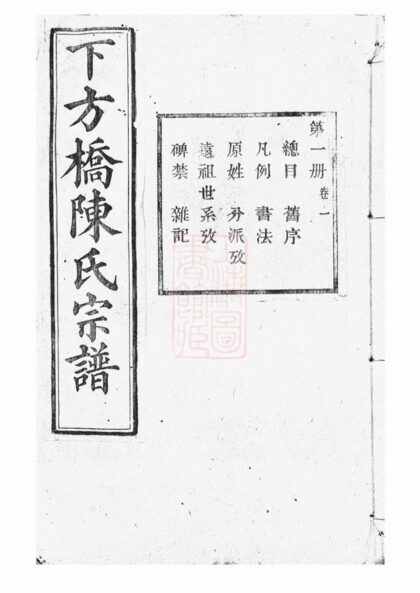 下方橋陳氏宗譜
第一册 卷一
總目 舊序
凡例 書法
原姓 分派攷
遠祖世系攷
碑禁 雜記